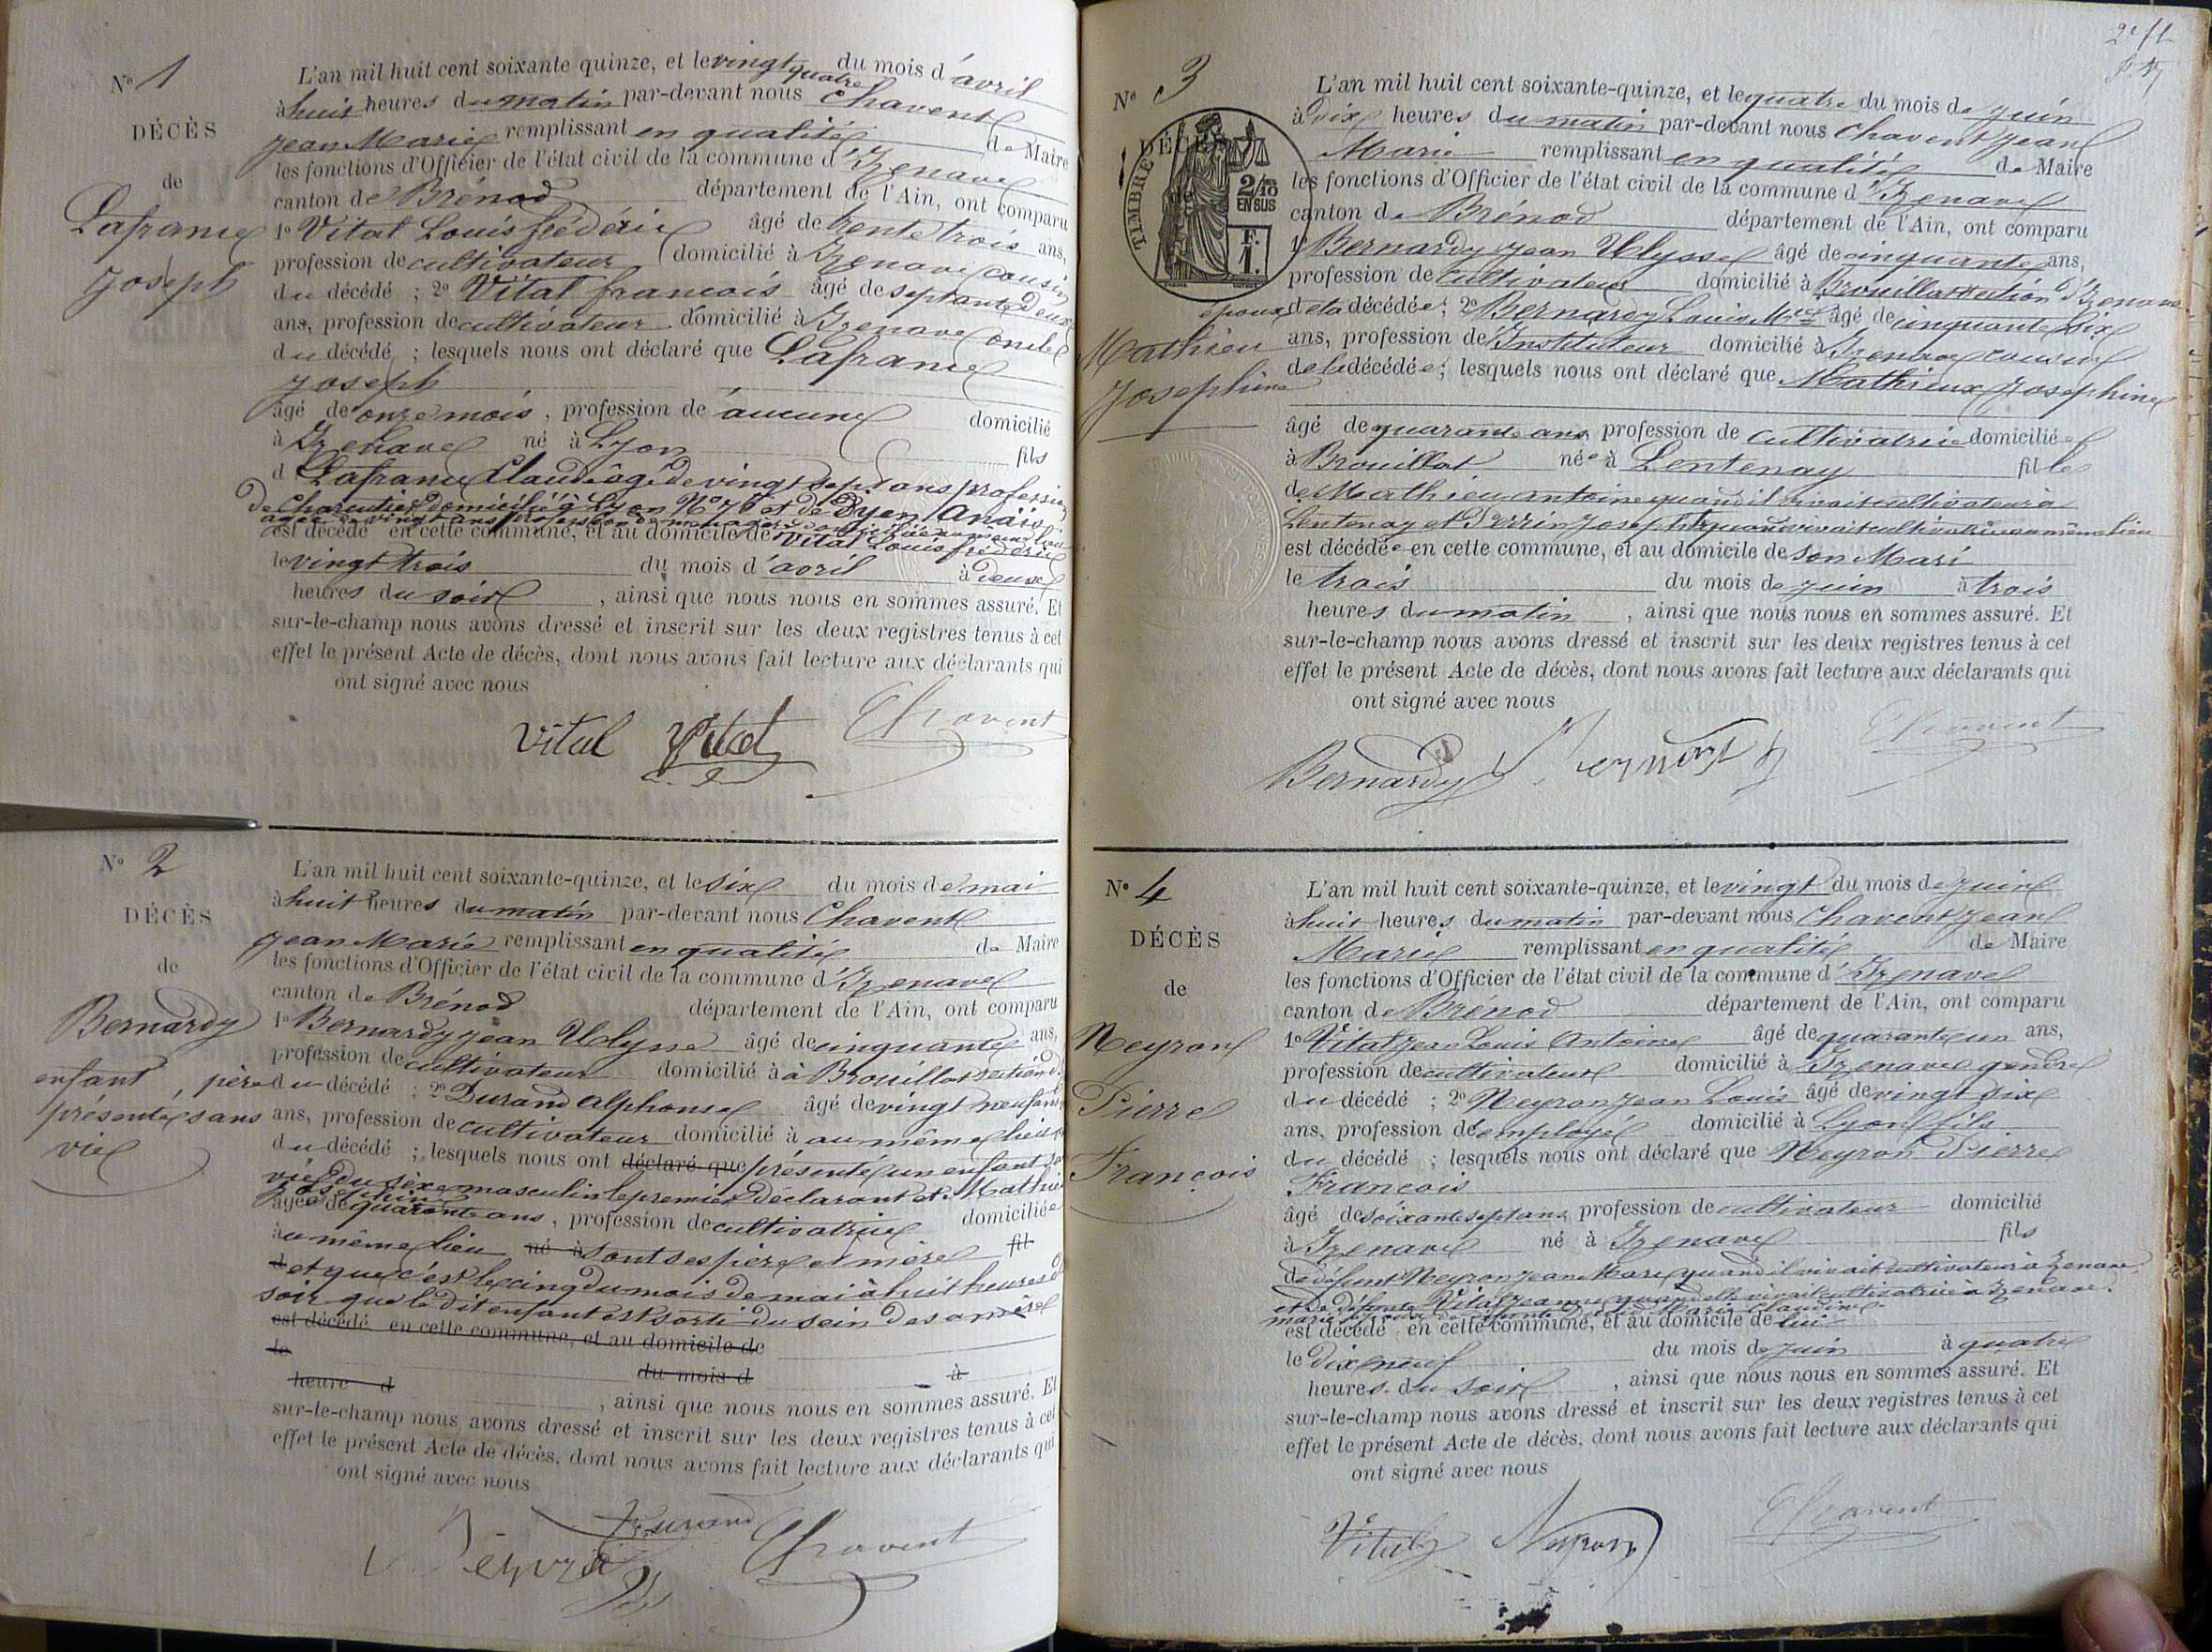 N° 1
DÉCÈS
de
Lafrance
Joseph
L'an mil huit cent soixante quinze, et le vingt quatre du mois d'avril
à huit heures du matin par-devant nous Chavent
Jean Marie remplissant en qualité de Maire
les fonctions d'Officier de l'état civil de la commune d'Izenave
canton de Brénod département de l'Ain, ont comparu
1° Vital Louis frédéric âgé de trente trois ans,
profession de cultivateur domicilié à Izenave cousin
du décédé ; 2° Vital francois âgé de septante deux
ans, profession de cultivateur domicilié à Izenave oncle
du décédé ; lesquels nous ont déclaré que Lafrance
Joseph
âgé de onze mois, profession de aucune domicilié
à Izenave né à Lyon fils
d Lafrance Claude âgé de vingt sept ans profession
de Charcutier domicilié à Lyon N° 76 et de Dyen Anaïs
agée de vingt ans profession de menagère domiciliée au même lieu
est décédé en cette commune, et au domicile de Vital Louis frédéric
le vingt trois du mois d'avril à deux
heures du soir, ainsi que nous nous en sommes assuré. Et
sur-le-champ nous avons dressé et inscrit sur les deux registres tenus à cet
effet le présent Acte de décès, dont nous avons fait lecture aux déclarants qui
ont signé avec nous
Vital Vital Chavent
N° 2
DÉCÈS
de
Bernardy
enfant
présenté sans
vie
L'an mil huit cent soixante-quinze, et le six du mois de mai
à huit heures du matin par-devant nous Chavent
Jean Marie remplissant en qualité de Maire
les fonctions d'Officier de l'état civil de la commune d'Izenave
canton de Brénod département de l'Ain, ont comparu
1° Bernardy Jean Ulysse âgé de cinquante ans,
profession de cultivateur domicilié à à Brouillat section d
père du décédé ; 2° Durand Alphonse âgé de vingt neuf ans
ans, profession de cultivateur domicilié à au même lieu
du décédé ; lesquels nous ont déclaré que présenté un enfant sans
vie du sèxe masculin le premier déclarant et Mathieu
Joséphine
âgée de quarante ans, profession de cultivatrice domiciliée
au même lieu né à sont ses père et mère fil
d et que c'est le cinq du mois de mai à huit heures d
soir que le dit enfant est sorti du sein de sa mère
est décédé en cette commune, et au domicile de
le
heure d du mois d à
, ainsi que nous nous en sommes assuré. Et
sur-le-champ nous avons dressé et inscrit sur les deux registres tenus à cet
effet le présent Acte de décès, dont nous avons fait lecture aux déclarants qui
ont signé avec nous
Durand Chavent
N° 3
DÉCÈS
de
TIMBRE
2/10
EN SUS
F.
1.
Mathieu
Josephine
L'an mil huit cent soixante-quinze, et le quatre du mois de juin
à dix heures du matin par-devant nous Chavent Jean
Marie remplissant en qualité de Maire
les fonctions d'Officier de l'état civil de la commune d'Izenave
canton de Brénod département de l'Ain, ont comparu
1° Bernardy Jean Ulysse âgé de cinquante ans,
profession de cultivateur domicilié à Brouillat section d'Izenave
époux de la décédée ; 2° Bernardy Louis âgé de cinquante six
ans, profession de Instituteur domicilié à Izenave cousin
de la décédée ; lesquels nous ont déclaré que Mathieux Josephine
âgé de quarante ans, profession de cultivatrice domiciliée
à Brouillat née à Lentenay fille
de Mathieu antoine quand il vivait cultivateur à
Lentenay et Perrin Josephte quand vivait cultivatrice au même lieu
est décédée en cette commune, et au domicile de son Mari
le trois du mois de juin à trois
heures du matin, ainsi que nous nous en sommes assuré. Et
sur-le-champ nous avons dressé et inscrit sur les deux registres tenus à cet
effet le présent Acte de décès, dont nous avons fait lecture aux déclarants qui
ont signé avec nous
Bernardy Chavent
N° 4
DÉCÈS
de
Neyron
Pierre
François
L'an mil huit cent soixante-quinze, et le vingt du mois de juin
à huit heures du matin par-devant nous Chavent Jean
Marie remplissant en qualité de Maire
les fonctions d'Officier de l'état civil de la commune d'Izenave
canton de Brénod département de l'Ain, ont comparu
1° Vital Jean Louis Antoine âgé de quarante un ans,
profession de cultivateur domicilié à Izenave gendre
du décédé ; 2° Neyron Jean Louis âgé de vingt six
ans, profession de employé domicilié à Lyon fils
du décédé ; lesquels nous ont déclaré que Neyron Pierre
François
âgé de soixante sept ans, profession de cultivateur domicilié
à Izenave né à Izenave fils
de défunt Neyron Jean Marie quand il vivait cultivateur à Izenave
et de défunte Vital Jeanne quand elle vivait cultivatrice à Izenave.
Marie Claudine
est décédé en cette commune, et au domicile de lui
le dix neuf du mois de juin à quatre
heures du soir, ainsi que nous nous en sommes assuré. Et
sur-le-champ nous avons dressé et inscrit sur les deux registres tenus à cet
effet le présent Acte de décès, dont nous avons fait lecture aux déclarants qui
ont signé avec nous
Vital Neyron Chavent